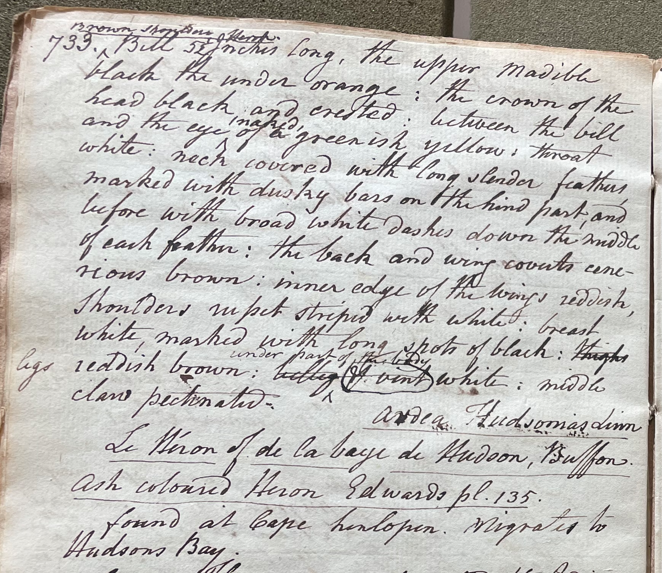 Brown Shoulder Heron
733. Bill 5½ Inches long, the upper Madible
black the under orange : the crown of the
head black and crested : between the bill
and the eye naked, of a greenish yellow : throat
white : neck covered with long slender feathers,
marked with dusky bars on the hind part, and
before with broad white dashes down the middle
of each feather : the back and wing coverts cene-
rious brown : inner edge of the wings reddish,
Shoulders rufset striped with white : breast
white, marked with long spots of black : thighs
legs reddish brown : belly under part of the body & vent white : middle
claw pectenated.
Ardea Hudsonias Linn
Le Héron of de la baye de Hudson, Buffon.
Ash coloured Heron Edwards pl. 135.
found at Cape henlopen. Migrates to
Hudsons Bay.